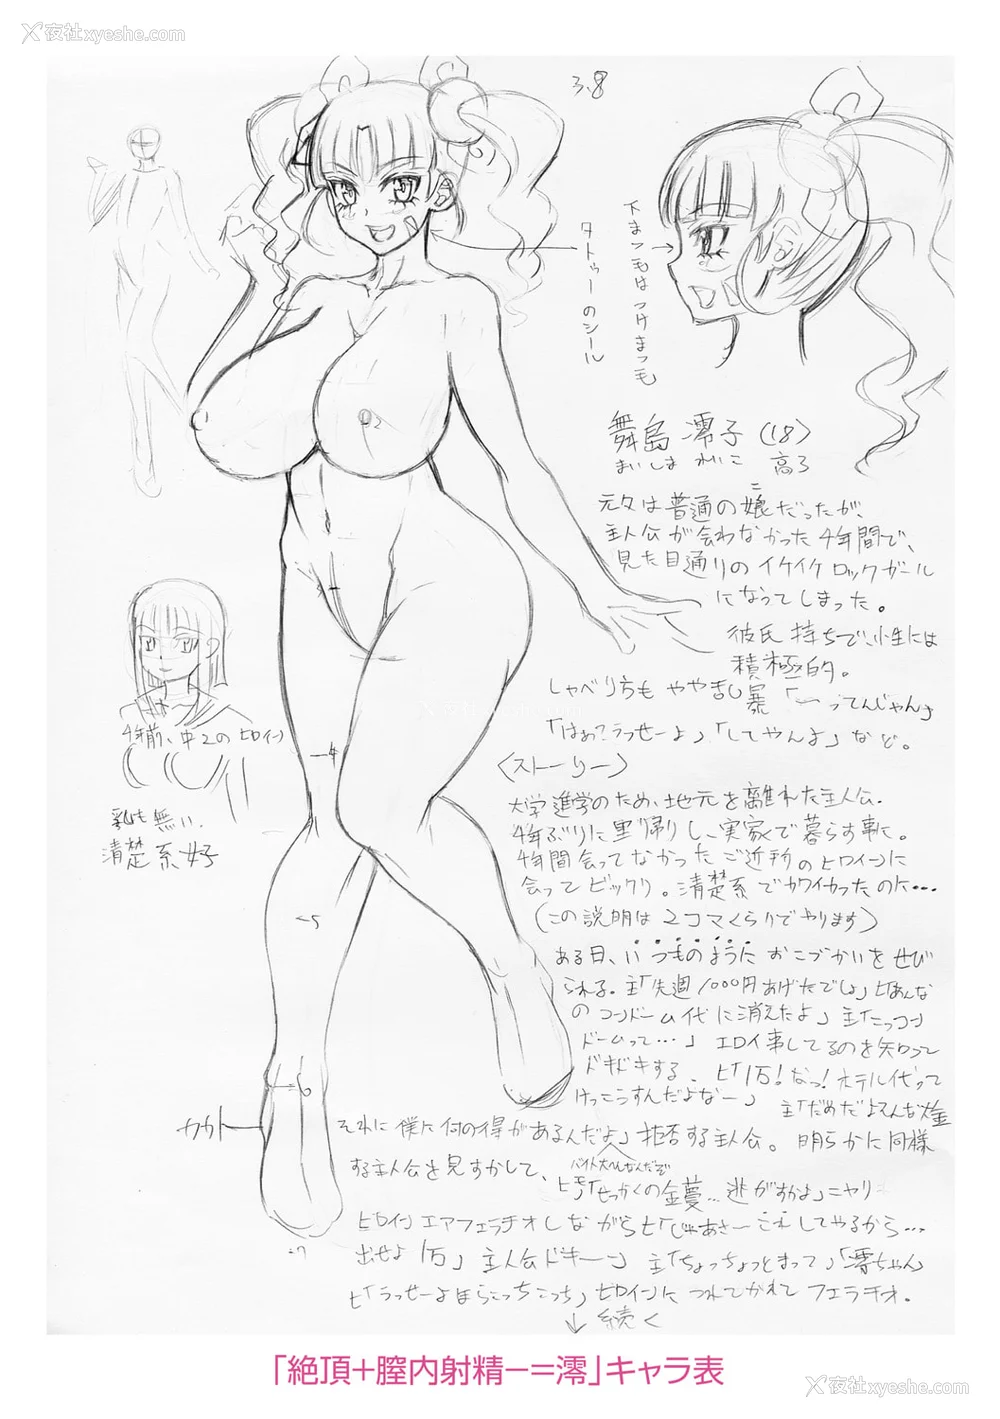 夜社xyeshe.com
3.8
下まつ毛はつけまつ毛
タトゥーのシール
舞島 澪子(18)
まいしま れいこ 高3
元々は普通の娘だったが、
主人公が会わなかった4年間で、
見た目通りのイケイケロックガール
になってしまった。
彼氏持ちで、性には
積極的。
しゃべり方も やや乱暴「~ってんじゃん」
「はぁ?うっせーよ」「してやんよ」など。
4年前、中2のヒロイン
乳も無い。
清楚系好
〈ストーリー〉
大学進学のため、地元を離れた主人公。
4年ぶりに里帰りし、実家で暮らす事に。
4年間会ってなかったご近所のヒロインに
会ってビックリ。清楚系でカワイかったのに…
(この説明は2コマくらいでやります)
ある日、いつものように おこづかいをせび
られる。主「先週1000円あげたでしょ」ヒ「あんな
のコンドーム代に消えたよ」主「こっコン
ドームって…」エロイ事してるのを知って
ドキドキする。ヒ「1万!なっ!ホテル代って
けっこうすんだよなー」 主「だめだよそんな大金
それに僕に何の得があるんだよ」拒否する主人公。明らかに同様
する主人公を見すかして、ヒ「せっかくの金蔓…逃がすかよ」ニヤリ
ヒロインエアフェラチオしながらヒ「じゃあさー これしてやるから…
出せよ 1万」 主人公ドキーン 主「ちょっちょっとまって」「澪ちゃん」
ヒ「うっせーよほらこっちこっち」ヒロインにつれてかれてフェラチオ。
↓ 続く
4
5
6
カット
7
「絶頂+膣内射精ー=澪」キャラ表
夜社xyeshe.com